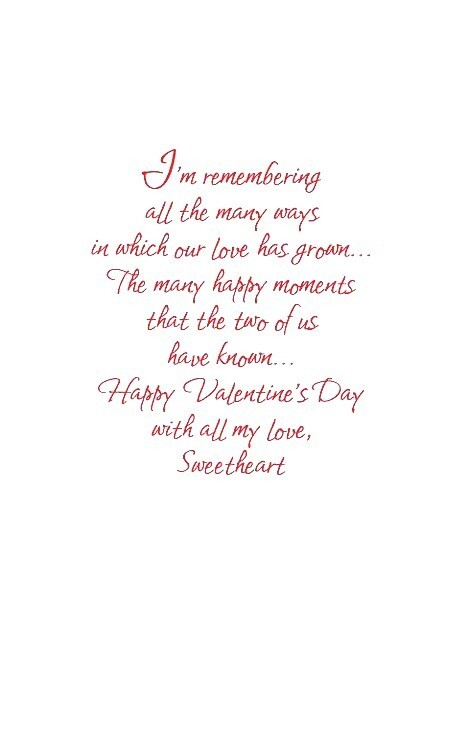 I'm remembering
all the many ways
in which our love has grown...
The many happy moments
that the two of us
have known...
Happy Valentine's Day
with all my love,
Sweetheart